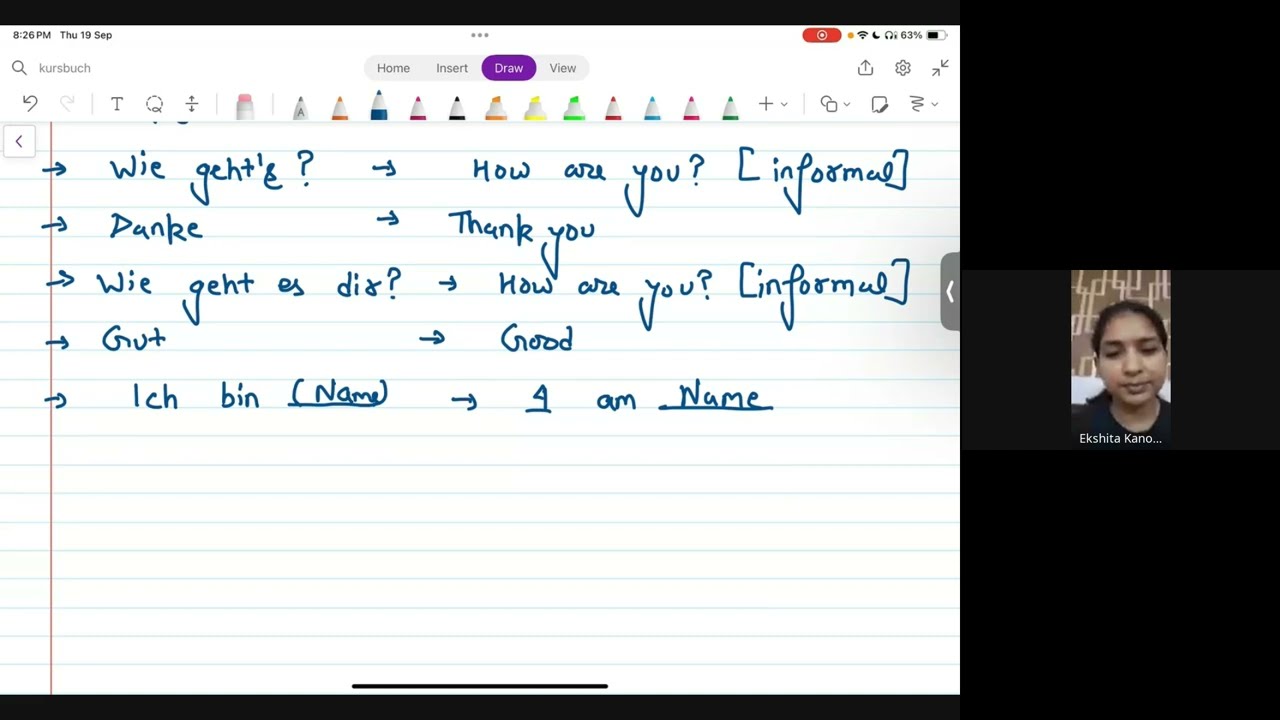 8:26 PM Thu 19 Sep
63%
kursbuch
Home Insert Draw View
→ Wie geht's? → How are you? [informal]
→ Danke → Thank you
→ Wie geht es dir? → How are you? [informal]
→ Gut → Good
→ Ich bin (Name) → I am Name
Ekshita Kano...